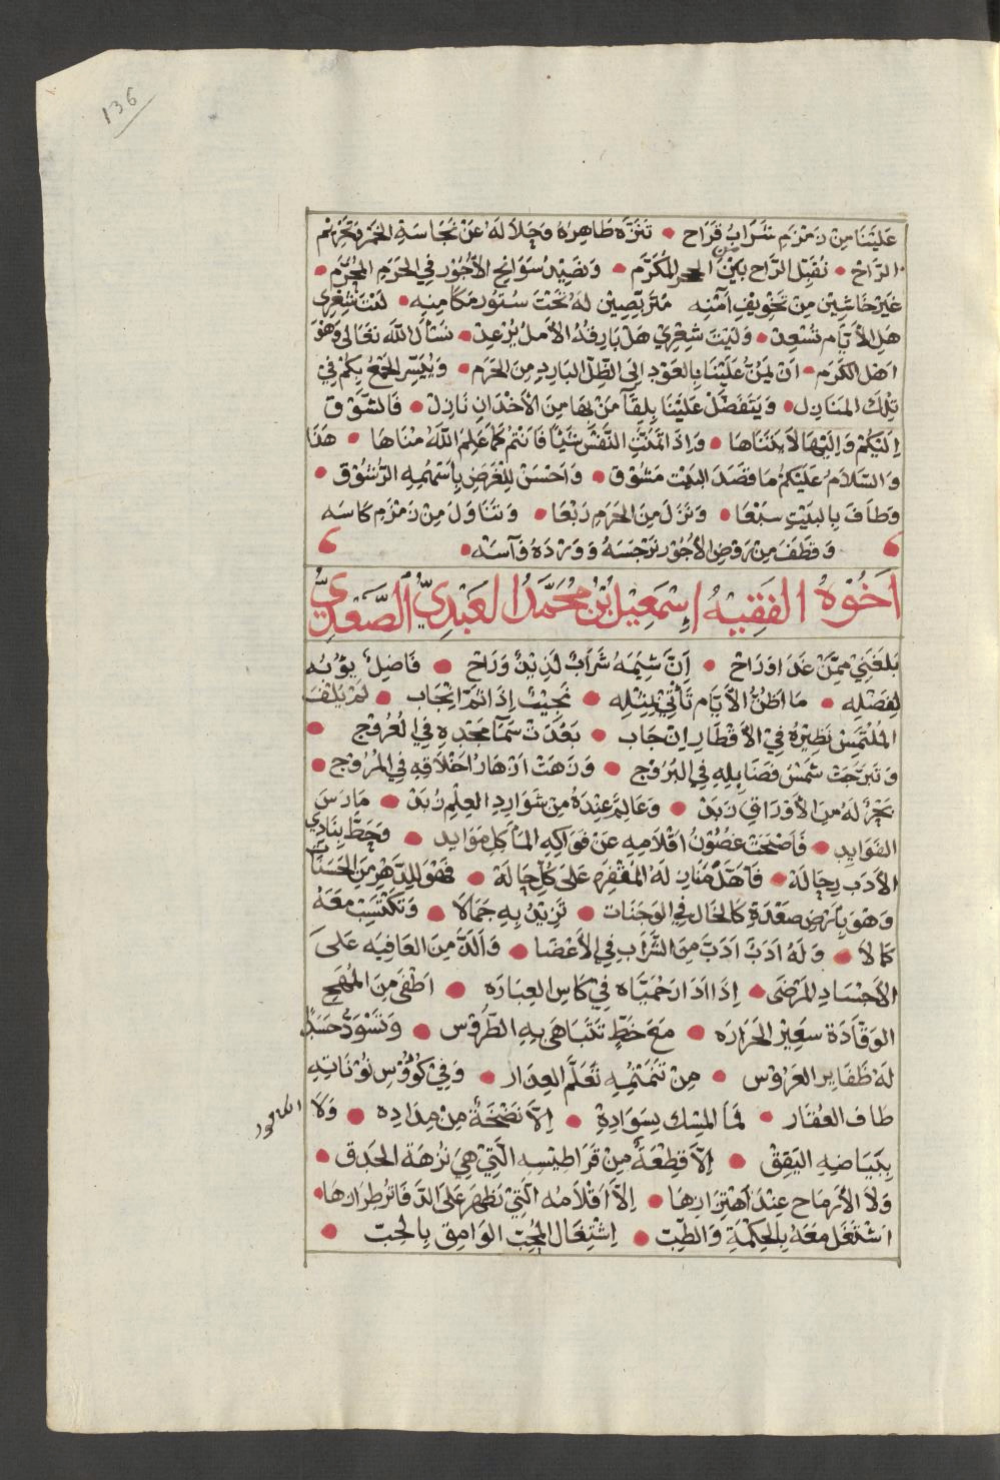 136
عَلَيْنَا مِنْ زَمْزَمِ شَرَابٌ قَرَاح • تَنَزَّهَ ظَاهِرُهُ وَجَلَالَهُ عَنْ نَجَاسَةِ الخَمْرِ وَتَحْرِيْم
الرَّاحْ • نُقَبِّل الرَّاح بَيْنَ الحجر المُكَرَّم • وَنَصِيْدُ سَوَانِحِ الأُجُوْرِ فِي الحَرَمِ المُحَرَّمِ •
غَيْرَ خَاشِيْنَ مِنْ تَخْوِيْفِ آمِنِهِ مُتَرَبِّصِيْنَ لَهُ تَحْتَ سُتُورِ مَكَامِنِهِ • لَيْتَ شِعْرِي
هَلِ الأَيَّام تُسْعِدْ • وَلَيْتَ شِعْرِيْ هَلْ بَارِقُهُ الأَمَل يُرْعِدْ • نَسْأَل اللّٰه تَعَالَى وَهُوَ
اَهْل الكَرَم • اَنْ يَمُنَّ عَلَيْنَا بِالعَوْدِ اِلَى الظِّلِّ البَارِدِ مِنَ الحَرَم • وَيُيَسِّر الجَمْعَ بِكُمْ فِيْ
تِلْكَ المَنَازِل • وَيَتَفَضَّلْ عَلَيْنَا بِلِقَآ مَنْ بِهَا مِنَ الأَخْدَانِ نَازِلْ • فَالشَّوْق
اِلَيْكُمْ وَاِلَيْهَا لَا يَتَنَاهَا • وَاِذَا تَمَنَّتِ النَّفْسُ شَيْأً فَاَنْتُم كَمَا عَلِمَ اللّٰهُ مُنَاهَا • هَذَا
وَالسَّلَامُ عَلَيْكُمْ مَا قَصَدَ البَيْت مَشُوْق • وَاَحْسَنَ لِلْغَرَضِ بِاَسْهُمِهِ الرُّشُوْق •
وَطَافَ بِالبَيْتِ سَبْعَا • وَنَزَلَ مِنَ الحَرَمِ رَبْعَا • وَتَنَاوَلَ مِنْ زَمْزَم كَاسَه
وَقَطَفَ مِنْ رَوْضِ الأُجُوْرِ نَرْجِسَهُ وَوَرْدَهُ وَآسَه •
اَخُوْهُ الفَقِيْهُ اِسْمَعِيْل بْنُ مُحَمَّدُ العَبْدِيُّ الصَّعْدِيُّ
بَلَغَنِيْ مِمَّنْ غَدَا وَرَاحْ • اِنَّ شِيَمَهُ شَرَابٌ لَذِيْذٌ وَرَاحْ • فَاضِلٌ يُؤْبَه
لِفَضْلِهِ • مَا اَظُنُّ الأَيَّام تَأْتِيْ بِمِثْلِه • نَجِيْبٌ اِذَا تَمَّ اِنْجَاب • لَمْ يَلْقَ
المُلْتَمِسْ نَظِيْرَهُ فِيْ الأَقْطَارِ اِنْ جَاب • بَعُدَتْ سَمَآ مَجْدِهِ فِي العُرُوْج •
وَتَبَرَّجَتْ شَمْسُ فَضَايِلِهِ فِي البُرُوْج • وَزَهَتْ اَزْهَارُ اَخْلَاقِهِ فِي المُرُوْج •
بَحْرٌ لَهُ مِنَ الأَوْرَاقِ زَبَدْ • وَعَالِمٌ عِنْدَهُ مِنْ شَوَارِدِ العِلْمِ زُبَدْ • مَارَسَ
الفَوَايِد • فَاَضْحَتْ غُصُوْنُ اَقْلَامِهِ عَنْ فَوَاكِهِ المَأْكَلِ مَوَايِد • وَحَطَّ بِنَادِي
الأَدَبِ رِحَالَهْ • فَأَهَّلَ مَنَازِلَهُ المُقْفِرَه عَلَى كُلِّ حَالَهْ • فَهْوَ لِلدَّهْرِ مِنَ الحَسَنَات
وَهْوَ بِاَرْضِ صَعْدَةَ كَالخَالِ فِي الوَجَنَات • تَزِيْدُ بِهِ جَمَالَا • وَتَكْتَسِبْ مَعَهُ
كَمَالَا • وَلَهُ اَدَبٌ اَدَبَّ مِنَ الشَّرَابِ فِي الأَعْضَا • وَاَلَذَّ مِنَ العَافِيَه عَلَى
الأَجْسَادِ المَرْضَى • اِذَا اَدَارَ حُمَيَّاه فِيْ كَاسِ العِبَارَه • اَطْفَى مِنَ المُهَجِ
الوَقَّادَة سَعِيْرَ الحَرَارَه • مَعَ خَطٍّ تَتَبَاهَى بِهِ الطُّرُوْس • وَتَسْوَدُّ حَسَدًا
لَهُ ظَفَايِر العَرُوْس • مِنْ تَنَمْنُمِهِ تَعَلَّمَ العِذَار • وَفِيْ كُؤُوْسِ نُوْنَاتِهِ
طَاف العُقَار • فَمَا المِسْك بِسَوَادِهْ • اِلَّا نَضْخَةٌ مِنْ مِدَادِه • وَلَا الكافور
بِبَيَاضِهِ اليَقِقْ • اِلَّا قِطْعَةٌ مِنْ قَرَاطِيْسِهِ الَّتِيْ هِيَ نُزْهَة الحَدَق •
وَلَا الأَرْمَاح عِنْدَ اهْتِزَازِهَا • اِلَّا اَقْلَامُه الَّتِيْ تَظْهَر عَلَى الدَّفَاتِرِ طِرَازهَا •
اشْتَغَلَ مَعَهُ بِالحِكْمَةِ وَالطِّبّ • اِشْتِغَال المُحِبّ الوَامِقِ بِالحِبّ •